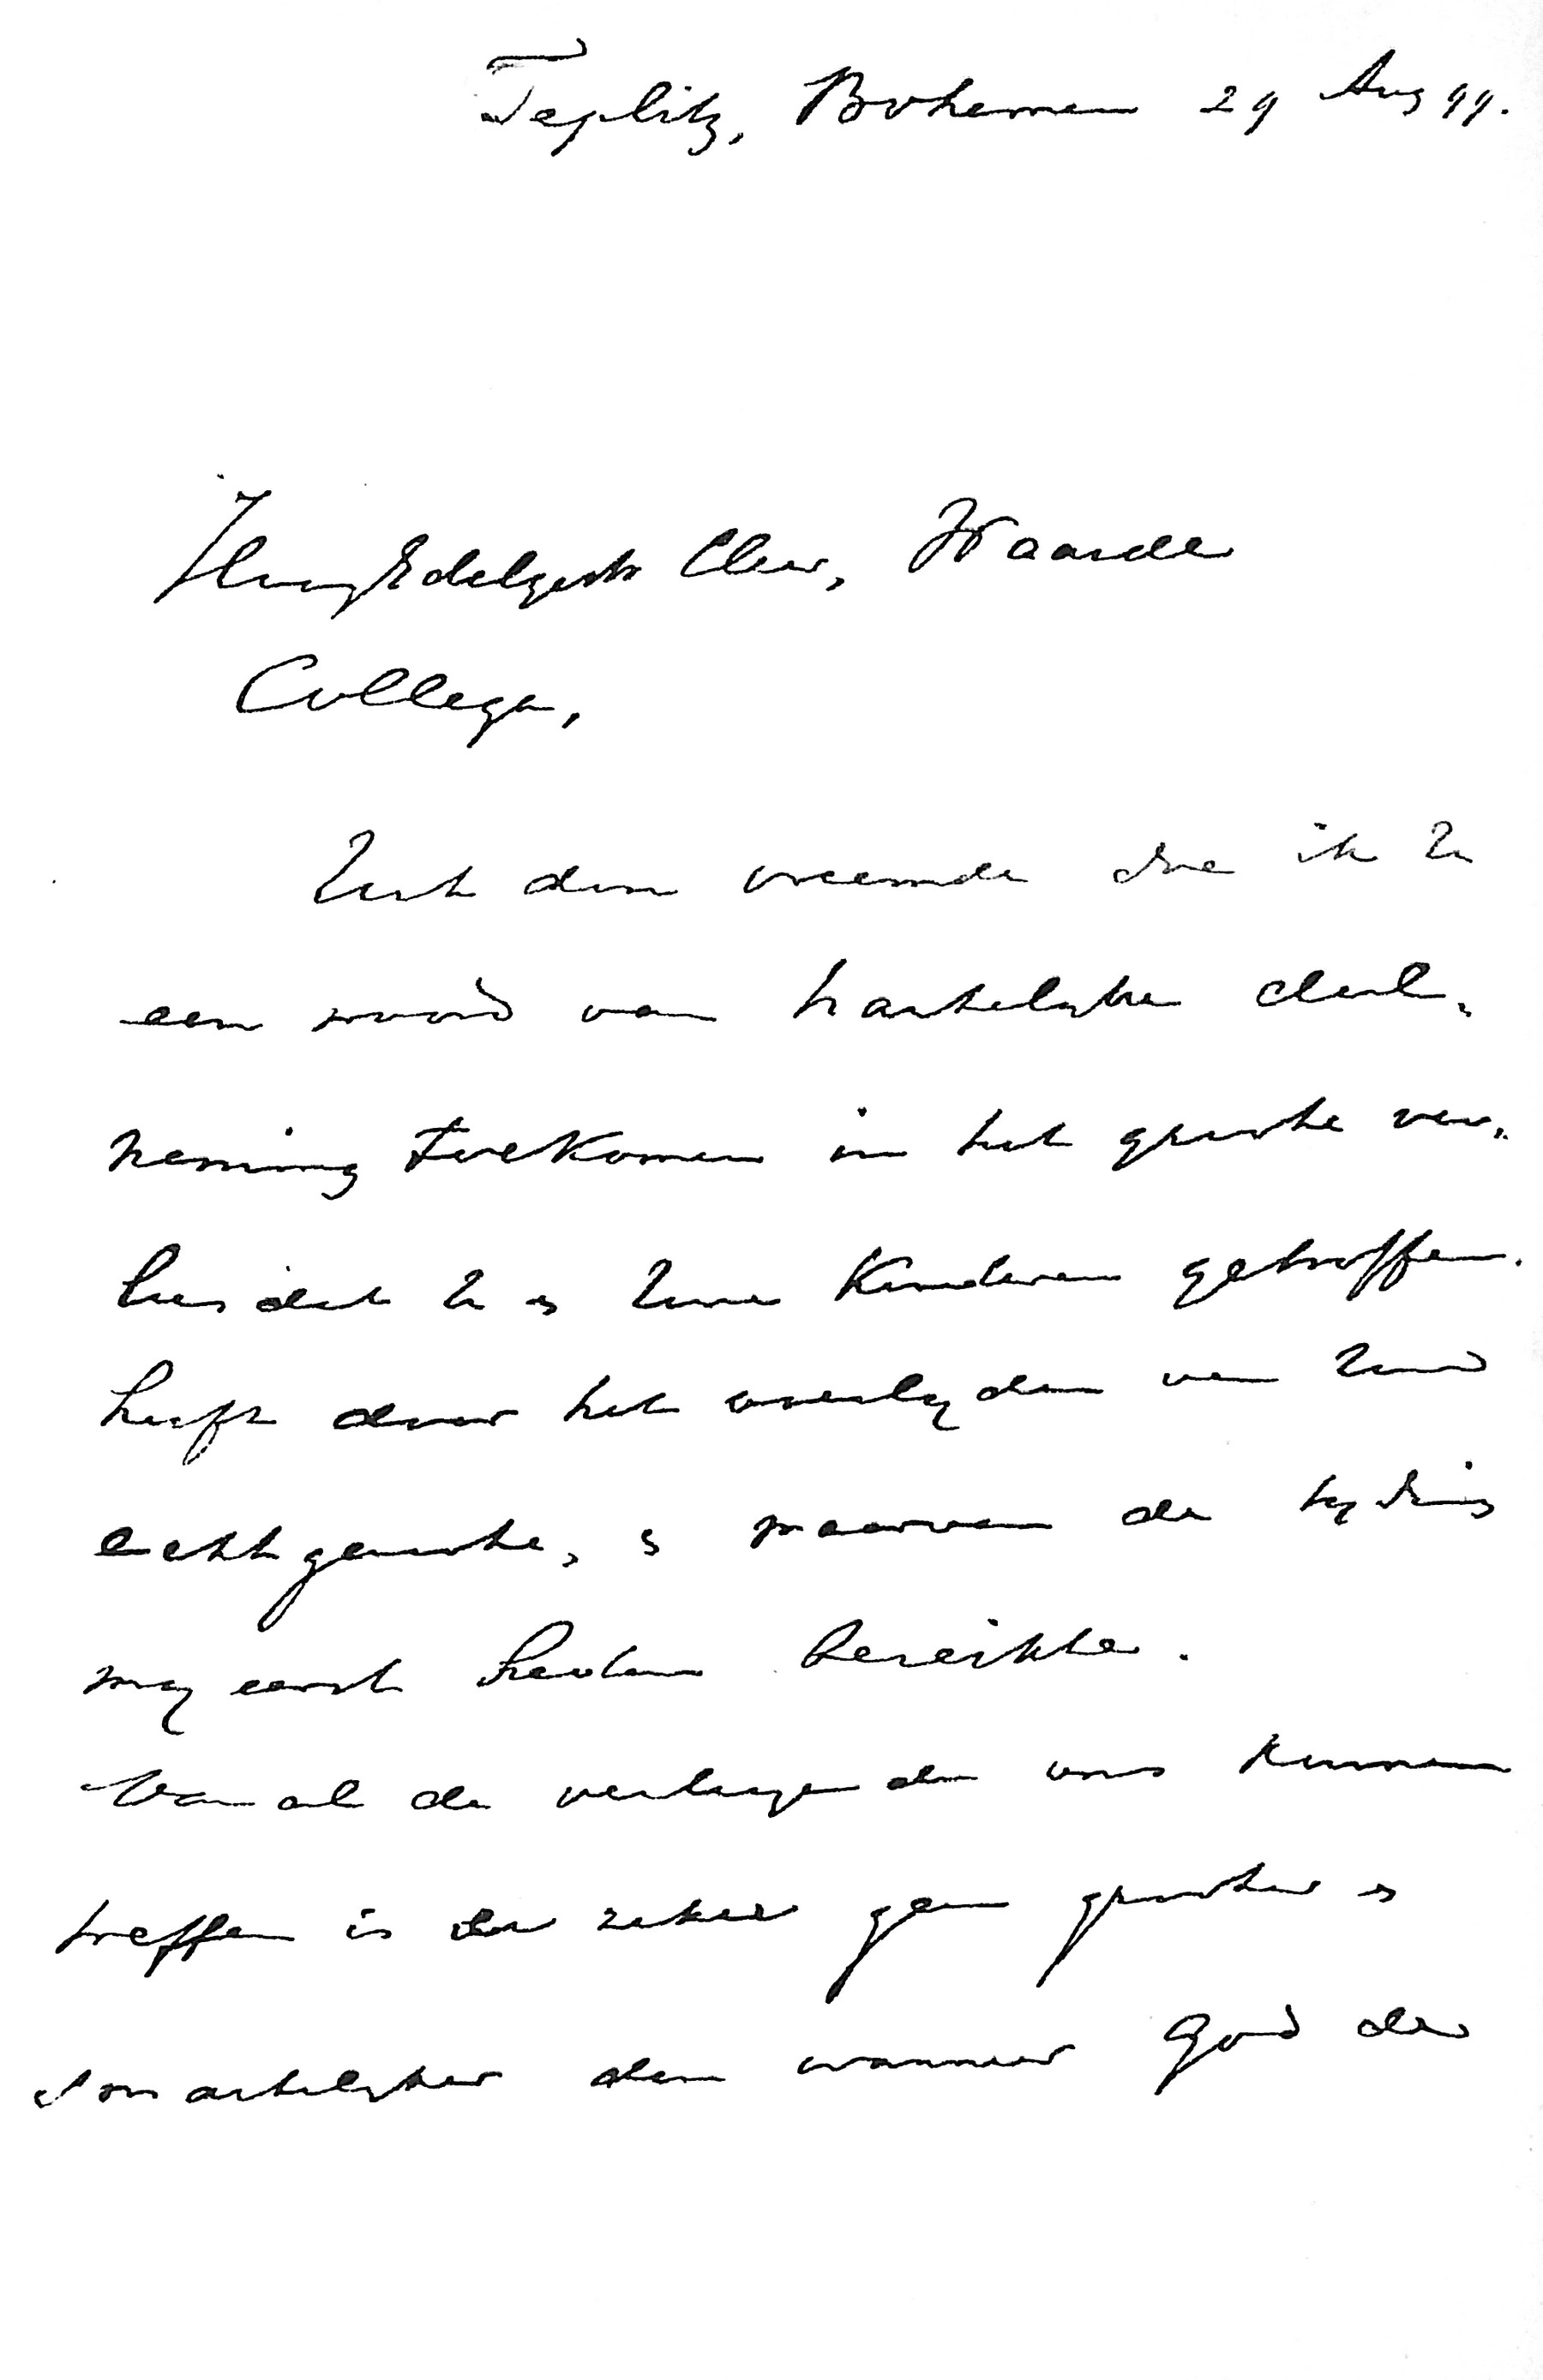 Teplitz, Bohemen 29 Aug 99.
HoogEdelgestr Heer, Waarde
Collega,
Uit den vreemde doe ik U
een woord van hartelyke deel„
neming toekomen in het groote ver„
lies dat U en Uwe Kinderen getroffen
heeft door het overlyden van Uwe
echtgenoote, en waarvan de tyding
my eerst heden bereikte.
Van al de verliezen die ons kunnen
treffen is der zeker geen grooter en
smartelyker dan wanneer God de